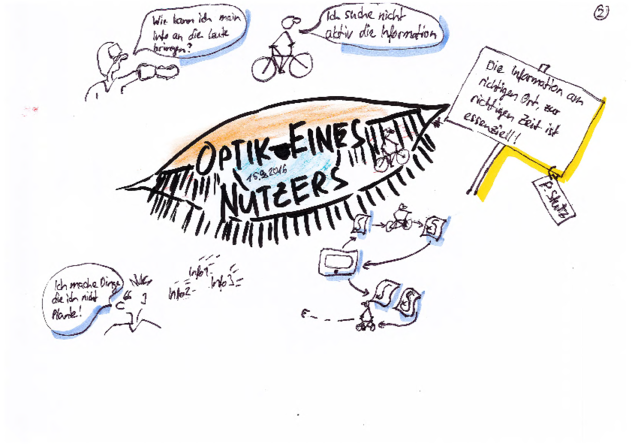 ②
Wie kann ich mein
Info an die Leute
bringen?
Ich suche nicht
aktiv die Information
Die Information am
richtigen Ort, zur
richtigen Zeit ist
essenziell!
OPTIK EINES
15.9.2016
NUTZERS
Ich mache Dinge
die ich nicht
Plante!
Info1
Info2
Info3